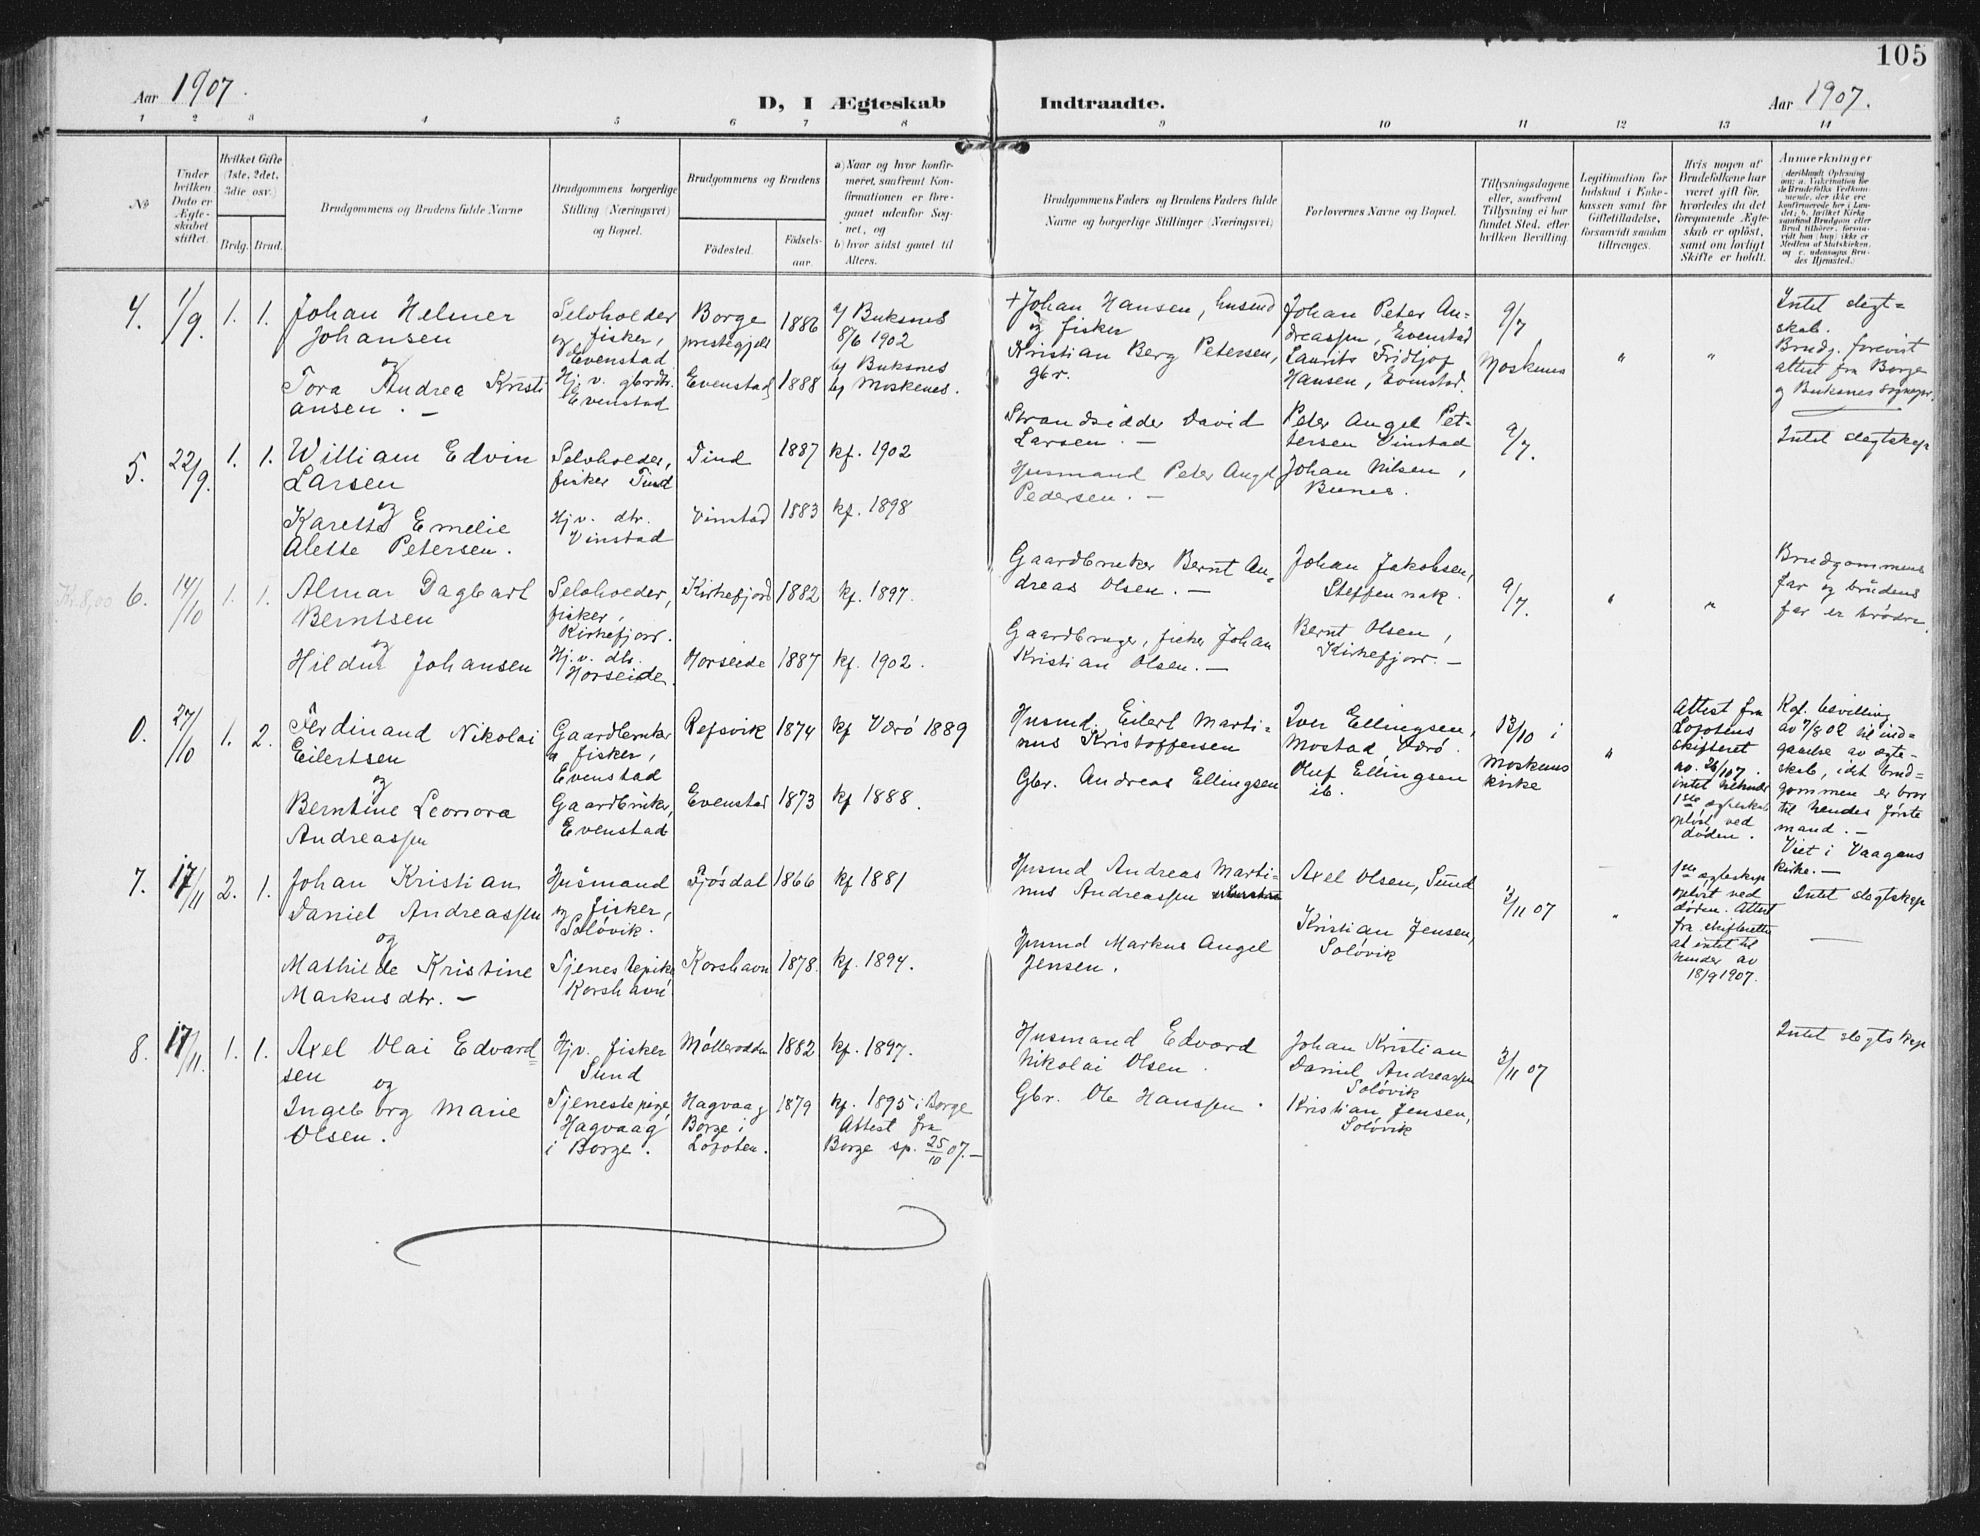 105
Aar 1907.
D, I Ægteskab
Indtraadte.
Aar 1907.
1 2 3 4 5 6 7 8 9 10 11 12 13 14
No
Under
hvilken
Dato er
Ægte-
skabet
stiftet.
Hvilket Gifte
(1ste, 2det,
3die osv.)
Brdg. Brud.
Brudgommens og Brudens fulde Navne
Brudgommens borgerlige
Stilling (Næringsvei)
og Bopæl.
Brudgommens og Brudens
Födested.
Födsels-
aar.
a) Naar og hvor konfir-
meret, saafremt Kon-
firmationen er fore-
gaaet udenfor Sog-
net, og
b) hvor sidst gaaet til
Alters.
Brudgommens Faders og Brudens Faders fulde
Navne og borgerlige Stillinger (Næringsvei)
Forlovernes Navne og Bopæl.
Tillysningsdagene
eller, saafremt
Tillysning ei har
fundet Sted, efter
hvilken Bevilling.
Legitimation for
Indskud i Enke-
kassen samt for
Giftetilladelse,
forsaavidt saadan
tiltrænges.
Hvis nogen af
Brudefolkene har
været gift før,
hvorledes da det
foregaaende Ægte-
skab er oplöst,
samt om lovligt
Skifte er holdt.
Anmærkninger
(deriblandt Oplysning
om: a. Vakcination for
de Brudefolks Vedkom-
mende, der ikke ere
konfirmerede her i Lan-
det; b. hvilket Kirke-
samfund Brudgom eller
Brud tilhörer, forsaa-
vidt han (hun) ikke er
Medlem af Statskirken,
og c. udensogns Bru-
des Hjemsted.)
4.
1/9.
1. 1.
Johan Helmer
Johansen
og
Tora Andrea Kristi
ansen. —
Selvholder
og fisker,
Evenstad
Hj. v. gbrdtr.
Evenstad
Borge
prestegjeld
Evenstad
1886
1888
a) Buksnes
8/6 1902
b) Buksnes
b) Moskenes.
+ Johan Hansen, husmd
og fisker
Kristian Berg Petersen,
gbr.
Johan Peter An-
dreassen, Evenstad
Laurits Fridtjof
Hansen, Evenstad.
9/7
Moskenes
"
"
Intet slegt-
skab.
Brudg. forevist
attest fra Borge
og Buksnes sognepr.
5.
22/9.
1. 1.
William Edvin
Larsen
og
Karetta Emelie
Alette Petersen.
Selvholder,
fisker Tind
Hj. v. dtr.
Vinstad
Tind
Vinstad
1887
1883
kf. 1902
kf. 1898
Strandsidder David
Larsen. —
Husmand Peter Angel
Pedersen. —
Peter Angel Pet-
tersen Vinstad
Johan Nilsen,
Bunes.
9/7.
Intet slegtskap
Kr. 8,00
6.
14/10
1. 1.
Almar Dagbart
Berntsen
og
Hildur Johansen
Selvholder,
fisker,
Kirkefjord.
Hj. v. dtr.
Horseide.
Kirkefjord
Horseide
1882
1887
kf. 1897.
kf. 1902.
Gaardbruker Bernt An-
dreas Olsen. —
Gaardbruger, fisker Johan
Kristian Olsen. —
Johan Jakobsen,
Steffennak.
Bernt Olsen,
Kirkefjord. —
9/7.
"
"
Brudgommens
far og brudens
far er brødre.
0.
27/10
1. 2.
Ferdinand Nikolai
Eilertsen
og
Berntine Leonora
Andreassen
Gaardbruker
& fisker,
Evenstad
Gaardbruker,
Evenstad
Refsvik
Evenstad
1874
1873
kf Værö 1889
kf 1888.
Husmd. Eilert Marti-
nus Kristoffersen
Gbr. Andreas Ellingsen
Iver Ellingsen,
Mostad, Værö.
Oluf Ellingsen
ib.
13/10 i
Moskenes
kirke
"
Attest fra
Lofotens
skifteret
av 26/107.
intet tilhinder
1ste egteskab
opløst ved
døden.
Kgl. bevilling
av 7/8 02 til ind-
gaaelse av egte-
skab, idet brud-
gommen er bror
til hendes første
mand. —
Viet i Vaagens
kirke. —
7.
17/11
2. 1.
Johan Kristian
Daniel Andreassen
og
Mathilde Kristine
Markusdtr. —
Husmand
og fisker,
Soløvik.
Tjenestepike
Korshavn
Fjøsdal
Korshavn
1866
1878.
kf 1881
kf. 1894.
Husmd Andreas Marti-
nus Andreassen
Husmd Markus Angel
Jensen.
Axel Olsen, Sund
Kristian Jensen,
Soløvik
3/11 07
"
1ste egteskap
opløst ved
døden. Attest
fra skifteretten
at intet til
hinder av
18/9 1907.
Intet slegtskap
8.
17/11.
1. 1.
Axel Olai Edvard-
sen
og
Ingeborg Marie
Olsen.
Hjv. fisker
Sund
Tjenestepige,
Hagvaag
i Borge.
Møllerodden
Hagvaag
Borge i
Lofoten.
1882
1879
kf. 1897.
kf. 1895 i Borge
Attest fra
Borge sp. 25/10 07. —
Husmand Edvard
Nikolai Olsen.
Gbr. Ole Hanssen.
Johan Kristian
Daniel Andreassen
Soløvik
Kristian Jensen,
Soløvik
3/11 07
Intet slegtskap